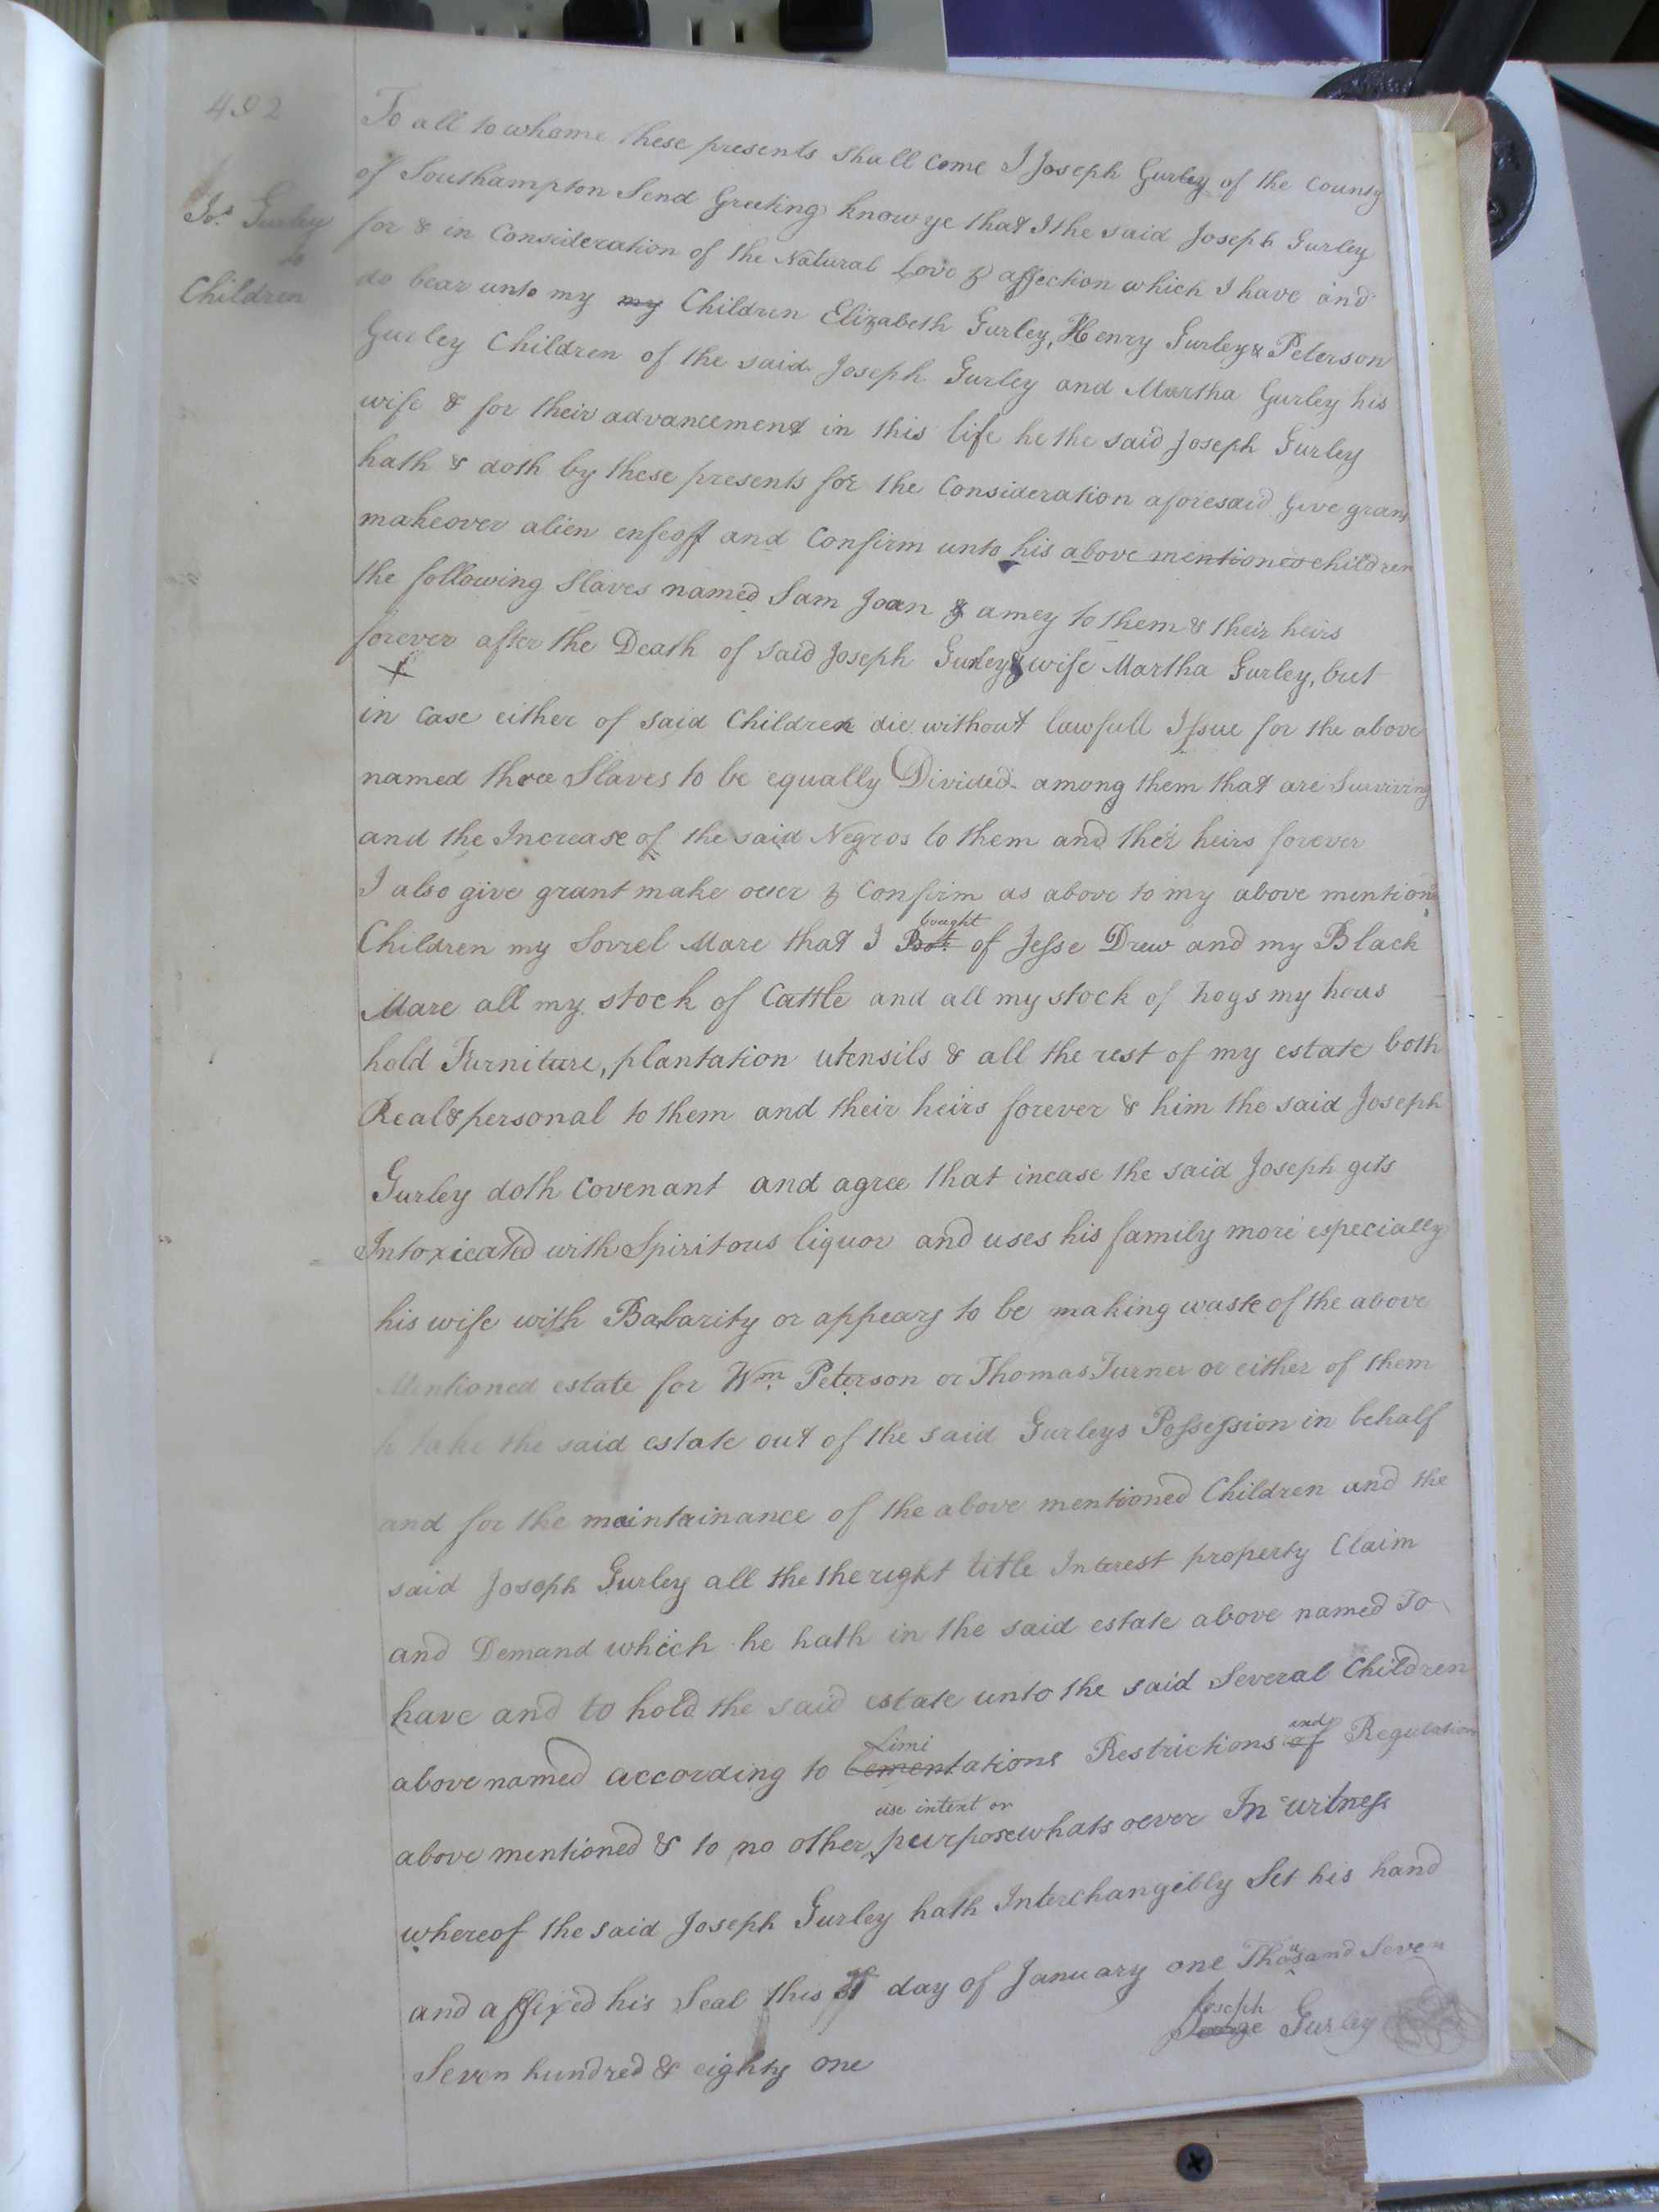 492
Jos. Gurley
to
Children
To all to whome these presents shall Come I Joseph Gurley of the County
of Southampton Send Greeting know ye that I the said Joseph Gurley
for & in Consideration of the Natural Love & affection which I have and
do bear unto my my Children Elizabeth Gurley, Henry Gurley & Peterson
Gurley Children of the said Joseph Gurley and Martha Gurley his
wife & for their advancement in this life he the said Joseph Gurley
hath & doth by these presents for the Consideration aforesaid Give grant
makeover alien enfeoff and Confirm unto his above mentioned children
the following Slaves named Sam Joan & amey to them & their heirs
forever after the Death of said Joseph Gurley & wife Martha Gurley, but
in Case either of said Children die without lawfull Issue for the above
named three Slaves to be equally Divided among them that are Surviving
and the Increase of the said Negros to them and their heirs forever
I also give grant make over & Confirm as above to my above mention'd
bought
Children my Sorrel Mare that I Bot. of Jesse Drew and my Black
Mare all my stock of Cattle and all my stock of hogs my hous
hold Furniture, plantation utensils & all the rest of my estate both
Real & personal to them and their heirs forever & him the said Joseph
Gurley doth Covenant and agree that incase the said Joseph gits
Intoxicated with Spiritous liquor and uses his family more especially
his wife with Babarity or appears to be making waste of the above
Mentioned estate for Wm. Peterson or Thomas Turner or either of them
to take the said estate out of the said Gurleys Possession in behalf
and for the maintainance of the above mentioned Children and the
said Joseph Gurley all the the right title Interest property Claim
and Demand which he hath in the said estate above named To
have and to hold the said estate unto the said Several Children
Limi and
above named according to Cementations Restrictions of Regulations
use intent or
above mentioned & to no other purpose whatsoever In witness
whereof the said Joseph Gurley hath Interchangibly Set his hand
and affixed his Seal this day of January one Thousand Seven
Joseph
George Gurley
Seven hundred & eighty one